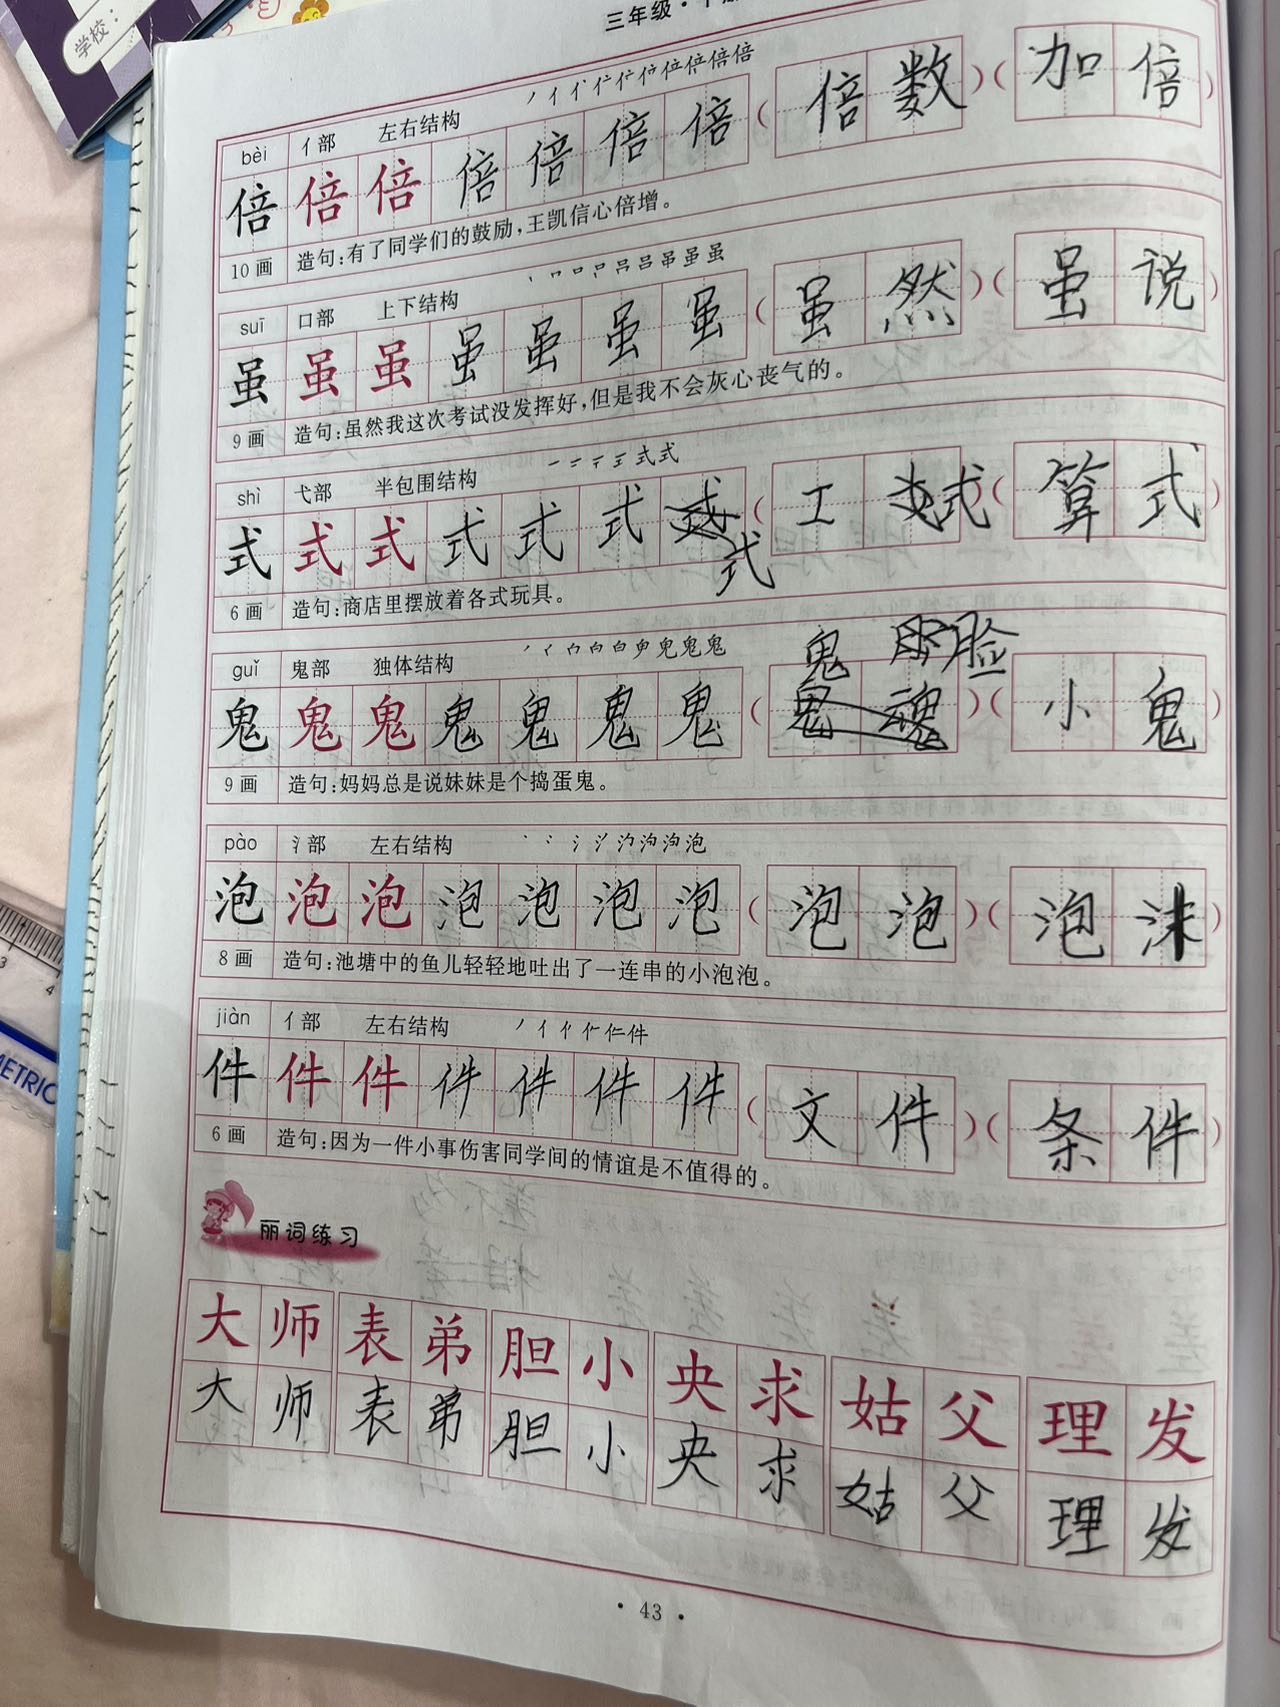 学校：
三年级·下册
bèi 亻部 左右结构 丿亻亻亻亻亻倍倍倍倍
倍 倍 倍 倍 倍 倍 倍 (倍数)(加倍)
10画 造句:有了同学们的鼓励,王凯信心倍增。
suī 口部 上下结构
虽 虽 虽 虽 虽 虽 虽 (虽然)(虽说)
9画 造句:虽然我这次考试没发挥好,但是我不会灰心丧气的。
shì 弋部 半包围结构
式 式 式 式 式 式 式 (工式)(算式)
6画 造句:商店里摆放着各式玩具。
guǐ 鬼部 独体结构
鬼脸
鬼 鬼 鬼 鬼 鬼 鬼 鬼 (鬼魂)(小鬼)
9画 造句:妈妈总是说妹妹是个捣蛋鬼。
pào 氵部 左右结构
泡 泡 泡 泡 泡 泡 泡 (泡泡)(泡沫)
8画 造句:池塘中的鱼儿轻轻地吐出了一连串的小泡泡。
jiàn 亻部 左右结构
件 件 件 件 件 件 件 (文件)(条件)
6画 造句:因为一件小事伤害同学间的情谊是不值得的。
丽词练习
大师 表弟 胆小 央求 姑父 理发
大师 表弟 胆小 央求 姑父 理发
3 4
METRIC
·43·